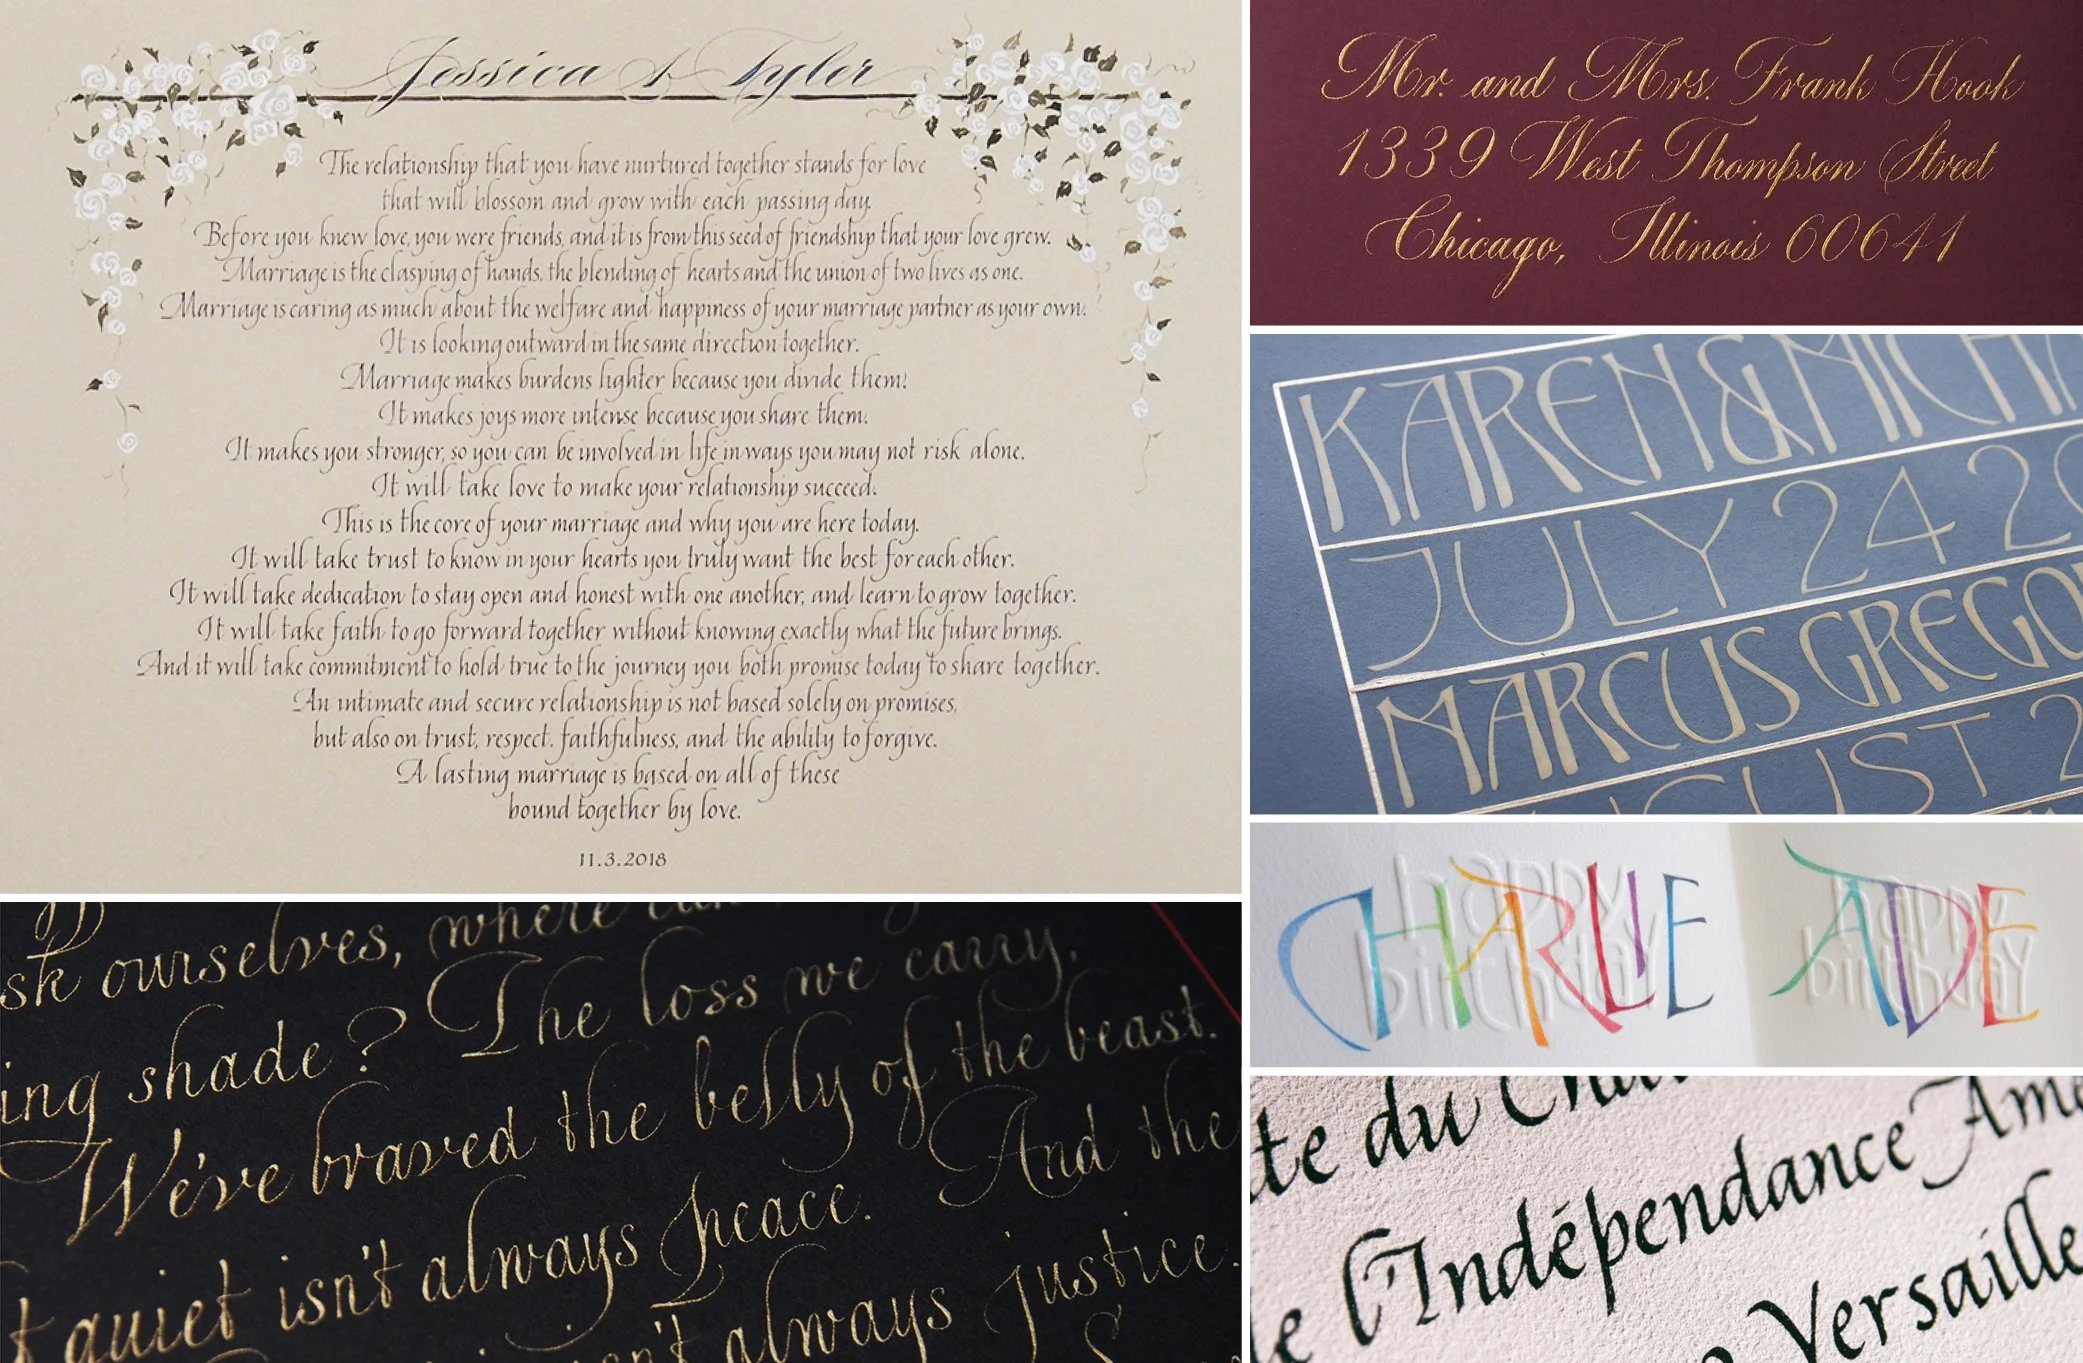 Jessica & Tyler
The relationship that you have nurtured together stands for love
that will blossom and grow with each passing day.
Before you knew love, you were friends, and it is from this seed of friendship that your love grew.
Marriage is the clasping of hands, the blending of hearts and the union of two lives as one.
Marriage is caring as much about the welfare and happiness of your marriage partner as your own.
It is looking outward in the same direction together.
Marriage makes burdens lighter because you divide them!
It makes joys more intense because you share them.
It makes you stronger, so you can be involved in life in ways you may not risk alone.
It will take love to make your relationship succeed.
This is the core of your marriage and why you are here today.
It will take trust to know in your hearts you truly want the best for each other.
It will take dedication to stay open and honest with one another, and learn to grow together.
It will take faith to go forward together without knowing exactly what the future brings.
And it will take commitment to hold true to the journey you both promise today to share together.
An intimate and secure relationship is not based solely on promises,
but also on trust, respect, faithfulness, and the ability to forgive.
A lasting marriage is based on all of these
bound together by love.
11.3.2018
Mr. and Mrs. Frank Hook
1339 West Thompson Street
Chicago, Illinois 60641
KAREN & MICHA
JULY 24 20
MARCUS GREGO
UGUST 2
CHARLIE
happy
birthday
ADE
happy
birthday
sk ourselves, where
ing shade? The loss we carry,
We've braved the belly of the beast.
quiet isn't always peace. And the
always justice.
te du
l'Indépendance Amé
Versaille